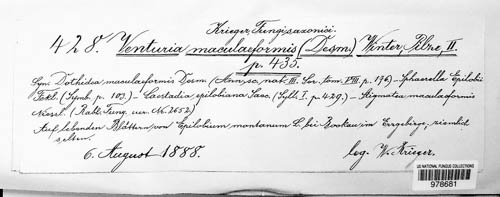 Krieger, Fungi saxonici.
428. Venturia maculaeformis (Desm.) Winter Pilze, II.
p. 435.
Syn. Dothidea maculaeformis Desm. (Ann. sc. nat. III. Ser. tom. VIII p. 176) – Sphaerella Epilobii
Fckl. (Symb. p. 103.) – Laestadia epilobiana Sacc. (Syll. I. p. 429.) – Stigmatea maculaeformis
Niessl. (Rabh. Fung. eur. No. 2652.)
Auf lebenden Blättern von Epilobium montanum L. bei Nossau im Erzgebirge, ziemlich
selten.
6. August 1888.
leg. W. Krieger.
US NATIONAL FUNGUS COLLECTIONS
978681